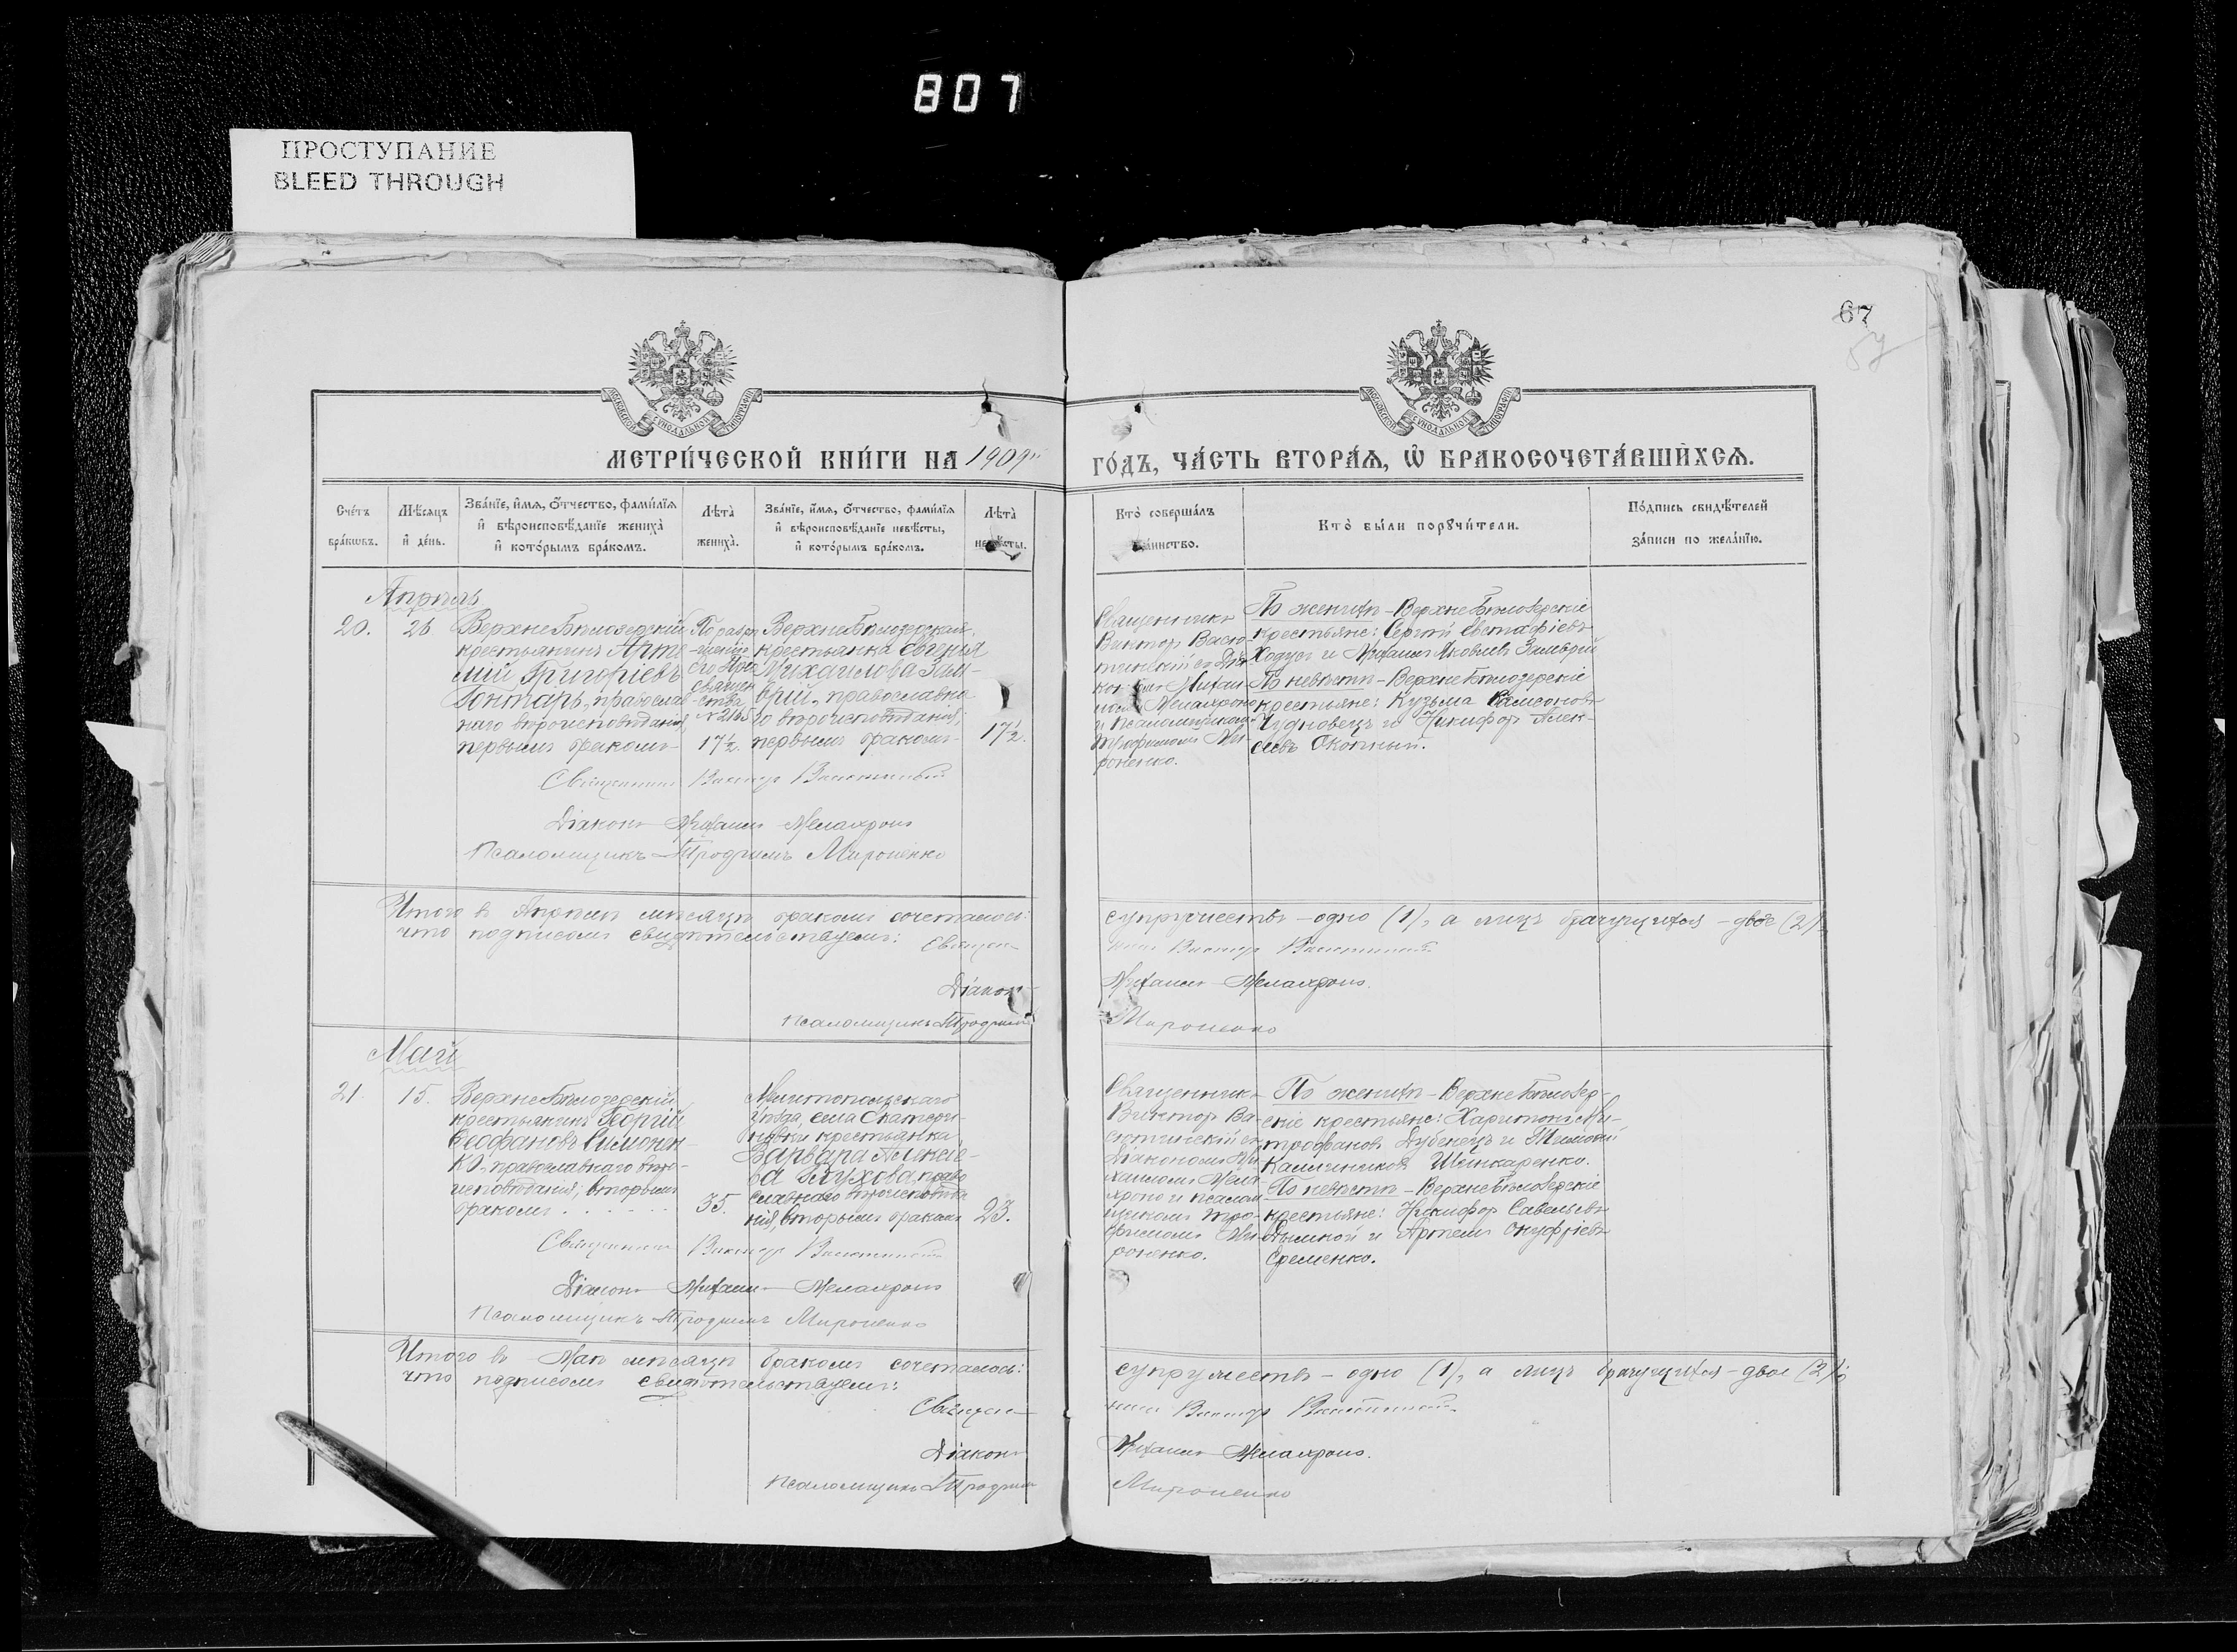 807
ПРОСТУПАНИЕ
BLEED THROUGH
67
МОСКОВСКОЙ СУНОДАЛЬНОЙ ТИПОГРАФІИ
МОСКОВСКОЙ СУНОДАЛЬНОЙ ТИПОГРАФІИ
МЕТРИ́ЧЕСКОЙ КНИ́ГИ НА 1909й
ГО́ДЪ, ЧА́СТЬ ВТОРА́Я, Ѡ БРАКОСОЧЕТА́ВШИХСЯ.
Сче́тъ бра́кѡвъ.
Мѣ́сяцъ и де́нь.
Зва́нїе, и́мя, ѻ́тчество, фами́лїя
и вѣроисповѣ́данїе жениха̀
и кото́рымъ бра́комъ.
Лѣта̀ жениха̀.
Зва́нїе, и́мя, ѻ́тчество, фами́лїя
и вѣроисповѣ́данїе невѣ́сты,
и кото́рымъ бра́комъ.
Лѣта̀ невѣ́сты.
Кто̀ соверша́лъ
та́инство.
Кто̀ бы́ли порꙋчи́тели.
По́дпись свидѣ́телей
за́писи по жела́нїю.
Апрѣль
20.
26
ВерхнеБѣлозерскій
крестьянинъ Арте
мій Григоріевъ
Гонтарь, православ
наго вѣроисповѣданія,
первымъ бракомъ
По разрѣ
шенію
Его Прео
священ
ства
№ 2145
17½.
ВерхнеБѣлозерская
крестьянка Евгенія
Михаилова Зам-
врій, православна
го вѣроисповѣданія,
первымъ бракомъ
17½.
Священникъ
Викторъ Васю
тинскій съ Діа
кономъ Михаи
ломъ Мелахроно
и Псаломщикомъ
Трофимомъ Ми-
роненко.
По женихѣ - ВерхнеБѣлозерскіе
крестьяне: Сергѣй Евстафіевъ
Ходусъ и Михаилъ Яковлевъ Замврій
По невѣстѣ - ВерхнеБѣлозерскіе
крестьяне: Кузьма Самсоновъ
Чудновецъ и Никифоръ Алек-
сѣевъ Окопный.
Священникъ Викторъ Васютинскій
Діаконъ Михаилъ Мелахроно
Псаломщикъ Трофимъ Мироненко
Итого въ Апрѣлѣ мѣсяцѣ бракомъ сочеталось: супружествъ - одно (1), а лицъ брачущихся - двое (2);
что подписомъ свидѣтельствуемъ: Священникъ Викторъ Васютинскій
Діаконъ Михаилъ Мелахроно.
Псаломщикъ Трофимъ Мироненко
Май
21.
15.
ВерхнеБѣлозерскій
крестьянинъ Георгій
Феофановъ Симонен
ко, православнаго вѣро-
исповѣданія, вторымъ
бракомъ
35.
Мелитопольскаго
уѣзда, села Екатери-
новки крестьянка
Варвара Алексѣе-
ва Глухова, право
славнаго вѣроисповѣда
нія, вторымъ бракомъ
23.
Священникъ
Викторъ Ва-
сютинскій съ
Діакономъ Ми
хаиломъ Мела
хроно и псалом
щикомъ Тро-
фимомъ Ми-
роненко.
По женихѣ - ВерхнеБѣлозер-
скіе крестьяне: Харитонъ Ми-
трофановъ Дубинецъ и Тимофей
Каллиниковъ Шинкаренко.
По невѣстѣ - ВерхнеБѣлозерскіе
крестьяне: Никифоръ Савельевъ
Дымкой и Артемъ Онуфріевъ
Еременко.
Священникъ Викторъ Васютинскій
Діаконъ Михаилъ Мелахроно
Псаломщикъ Трофимъ Мироненко
Итого въ Маѣ мѣсяцѣ бракомъ сочеталось: супружествъ - одно (1), а лицъ брачущихся - двое (2);
что подписомъ свидѣтельствуемъ:
Священникъ Викторъ Васютинскій
Діаконъ Михаилъ Мелахроно.
Псаломщикъ Трофимъ Мироненко